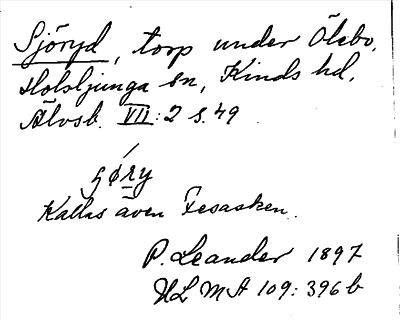 Sjöryd, torp under Ölsbo,
Holsljunga sn, Kinds hd,
Älvsb. VII:2 s.49
Kallas även Fesasken.
P. Leander 1897
ULMA 109:396 b